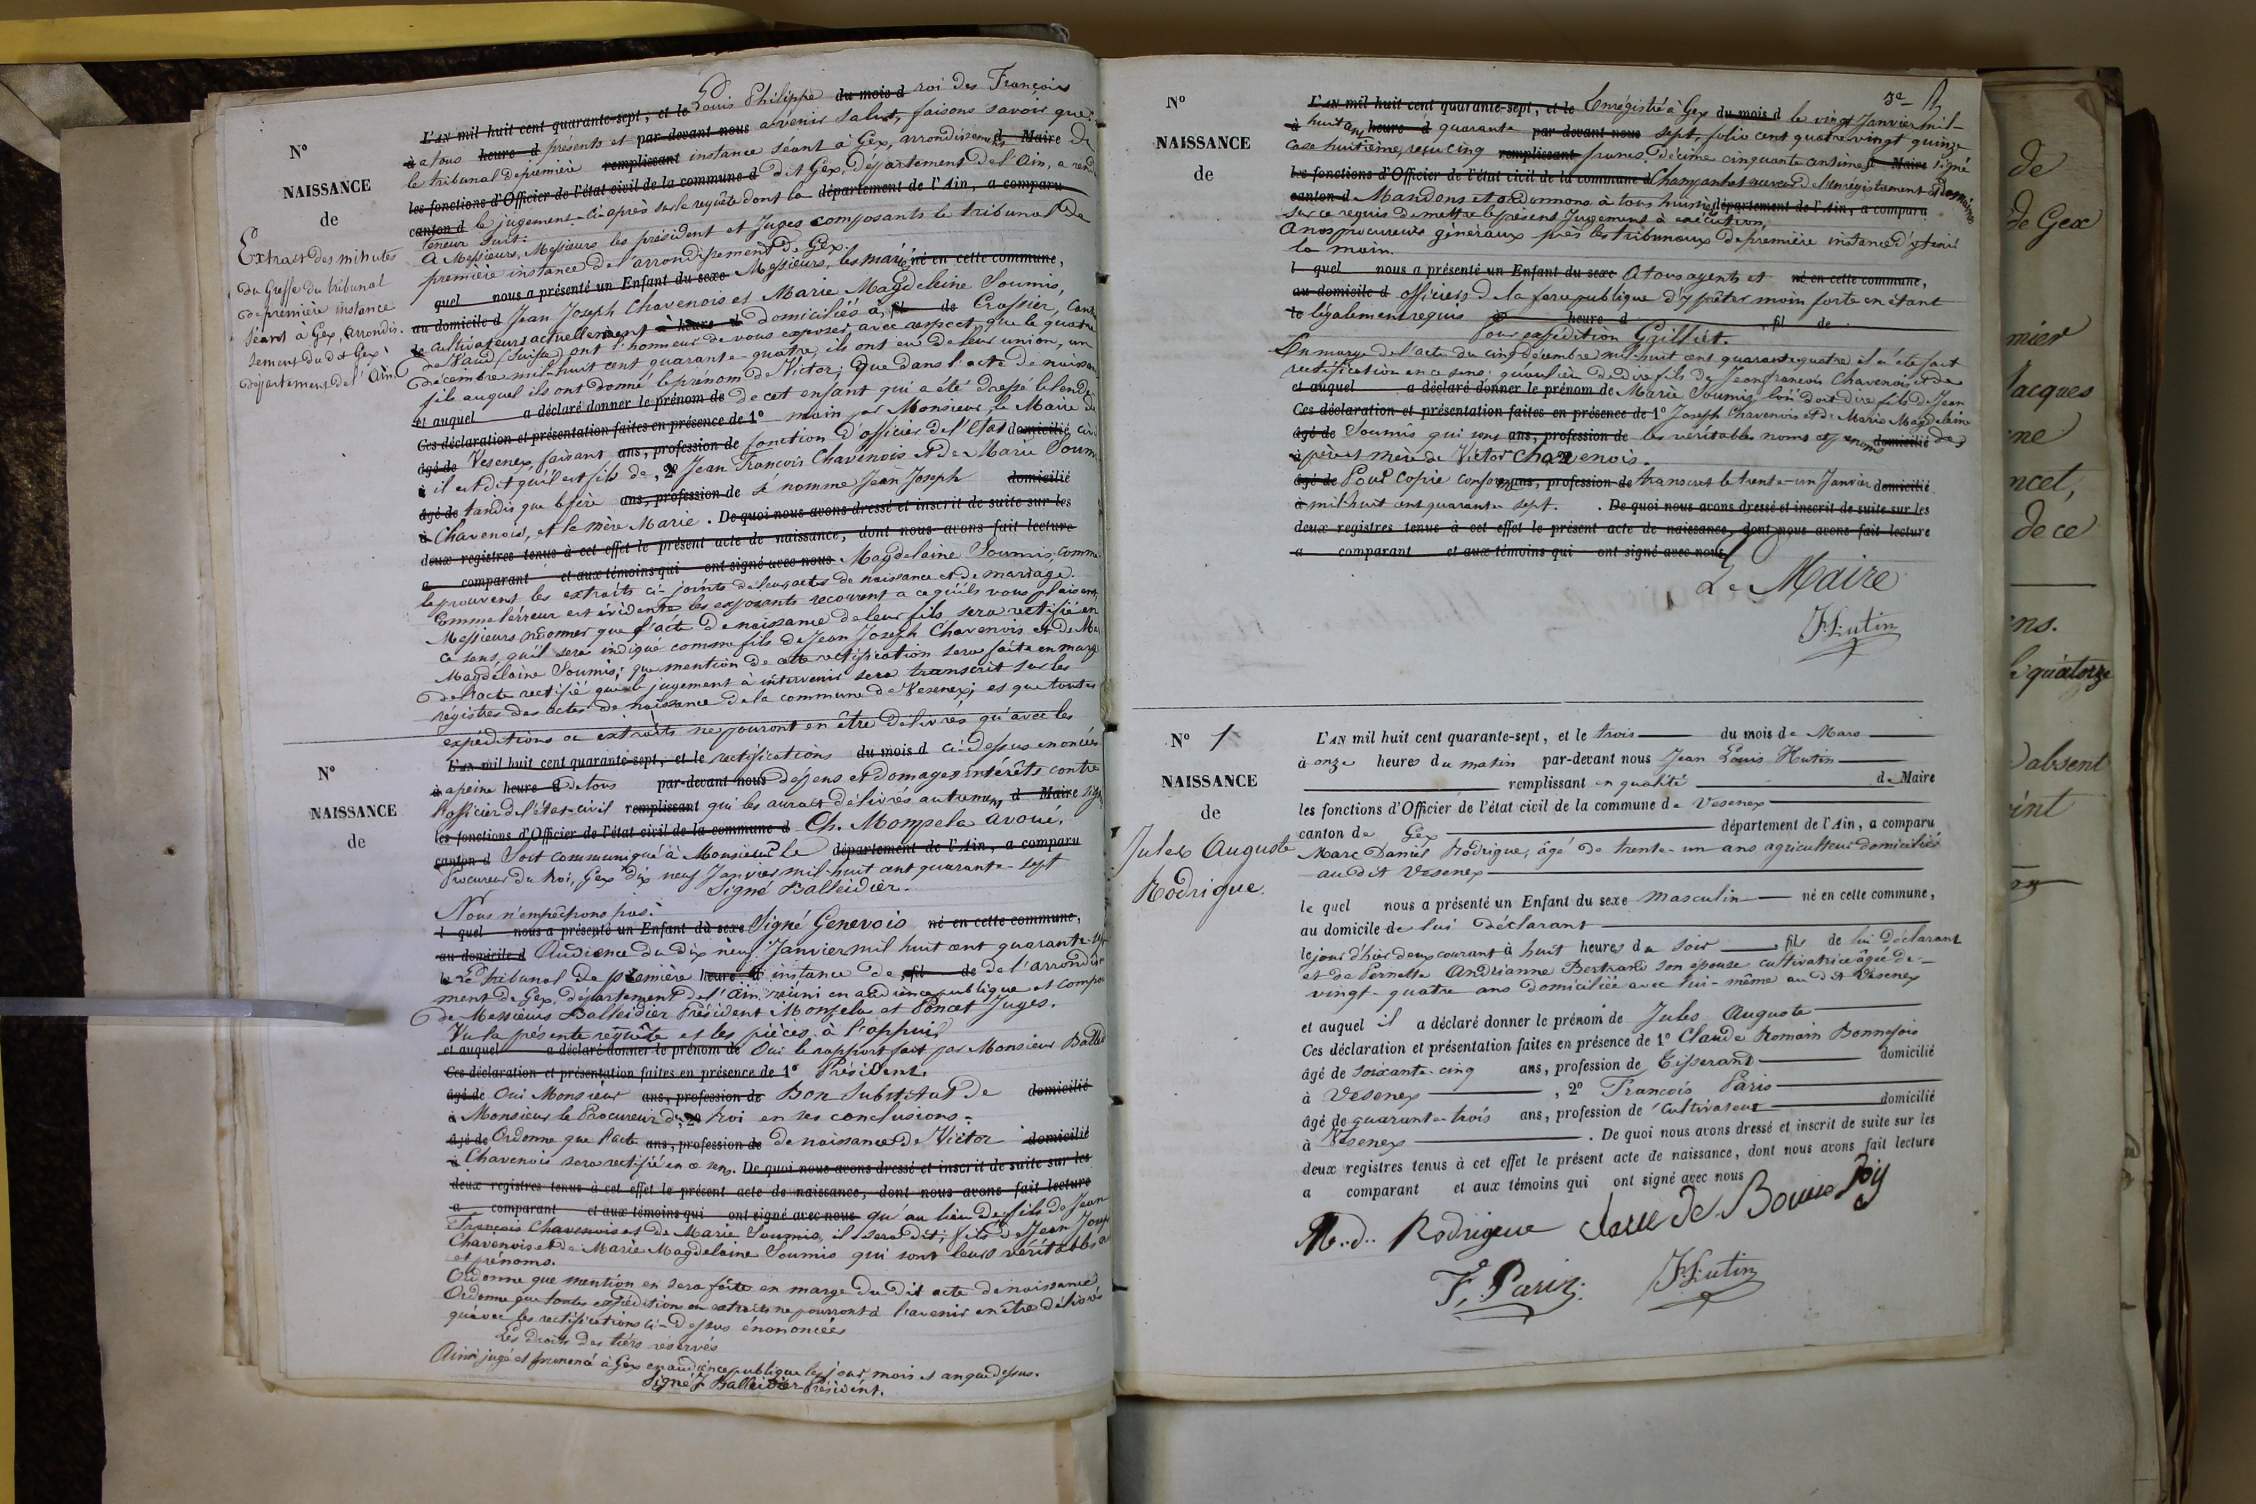 N°
NAISSANCE
de
Extrait des minutes
du Greffe du tribunal
de première instance
séant à Gex, arrondis-
sement du dt Gex,
département de l'Ain
L'AN mil huit cent quarante-sept, et le Louis Philippe du mois d roi des François
à a tous heure d présents et par-devant nous avenir salut, faisons savoir que
le tribunal de première remplissant instance séant à Gex, arrondissement d Maire du
les fonctions d'Officier de l'état civil de la commune d dit Gex, département de l'Ain, a rendu
canton d le jugement ci-après sur la requête dont la département de l'Ain, a comparu
teneur suit:
A Messieurs, Messieurs les président et Juges composants le tribunal de
première instance de l'arrondissement de Gex.
quel nous a présenté un Enfant du sexe Messieurs, les mariés né en cette commune,
au domicile d Jean Joseph Chavenois et Marie Magdeleine Soumis,
le cultivateurs actuellement à heure d domiciliés à fil de Crassier, Canton
de Vaud (Suisse) ont l'honneur de vous exposer avec respect, que le quatre
décembre mil-huit cent quarante-quatre, ils ont eu de leur union, un
fils auquel ils ont donné le prénom de Victor; Que dans l'acte de naissan
et auquel a déclaré donner le prénom de de cet enfant qui a été dressé le lende
Ces déclaration et présentation faites en présence de 1° main par Monsieur le Maire de
âgé de Vesenex, faisant ans, profession de fonction d'officier de l'état domicilié civil
à il est dit qu'il est fils de , 2° Jean François Chavenois et de Marie Soumis
âgé de tandis que le père ans, profession de se nomme Jean Joseph domicilié
à Chavenois, et la mère Marie. De quoi nous avons dressé et inscrit de suite sur les
deux registres tenus à cet effet le présent acte de naissance, dont nous avons fait lecture
a comparant et aux témoins qui ont signé avec nous Magdelaine Soumis comme
le prouvent les extraits ci-joints de leurs actes de naissance et de mariage.
Comme l'erreur est évidente les exposants recourent a ce qu'il vous plaise,
Messieurs ordonner que l'acte de naissance de leur fils sera rectifié en
ce sens, qu'il sera indiqué comme fils de Jean Joseph Chavenois et de Ma
Magdelaine Soumis; que mention de cette rectification sera faite en marge
de l'acte rectifié que le jugement à intervenir sera transcrit sur les
régistres des actes de naissance de la commune de Vesenex; et que toutes
expéditions ou extraits ne pouront en être délivrés qu'avec les
N°
NAISSANCE
de
L'AN mil huit cent quarante-sept, et le rectifications du mois d ci-dessus énoncées
à a peine heure d de tous par-devant nous dépens et domages intérêts contre
l'officier de l'état-civil remplissant qui les aurait délivrés autrement d Maire signé
les fonctions d'Officier de l'état civil de la commune d Ch. Mompela avoué.
canton d Soit communiqué à Monsieur le département de l'Ain, a comparu
Procureur du Roi, Gex dix neuf Janvier mil-huit cent quarante-sept
Signé Balleidier.
Nous n'empêchons pas:
l quel nous a présenté un Enfant du sexe Signé Genevois né en cette commune,
au domicile d Audience du dix neuf Janvier mil huit cent quarante-sept
le Le tribunal de première heure d instance de fil de de l'arrondisse
ment de Gex, département de l'Ain, réuni en audience publique et composé
de Messieurs Balleidier Président Monpelas et Poncet Juges.
Vu la présente requête et les pièces à l'appui
et auquel a déclaré donner le prénom de Oui le rapport fait par Monsieur Balleid
Ces déclaration et présentation faites en présence de 1° Président.
âgé de Oui Monsieur ans, profession de Bon Substitut de domicilié
à Monsieur le Procureur du, 2° Roi en ses conclusions.
âgé de Ordonne que l'acte ans, profession de de naissance de Victor domicilié
à Chavenois sera rectifié en ce sens. De quoi nous avons dressé et inscrit de suite sur les
deux registres tenus à cet effet le présent acte de naissance, dont nous avons fait lecture
a comparant et aux témoins qui ont signé avec nous qu'au lieu de fils de Jean
François Chavenois et de Marie Soumis, il sera dit; fils de Jean Joseph
Chavenois et de Marie Magdelaine Soumis qui sont leurs véritables
et prénoms.
Ordonne que mention en sera faite en marge du dit acte de naissance
Ordonne que toutes expéditions ou extraits ne pourront à l'avenir en être délivrés
qu'avec les rectifications ci-dessus énononcées
Les droits des tiers réservés
Ainsi jugé et prononcé à Gex en audience publique les jour, mois et an que dessus.
Signé J. Balleidier Président.
N°
NAISSANCE
de
L'AN mil huit cent quarante-sept, et le Enrégistré à Gex du mois d le vingt Janvier mil-
à huit cent heure d quarante par-devant nous sept, folio cent quatre vingt quinze
case huitième, reçu cinq remplissant francs, décime cinquante centimes d Maire signé
les fonctions d'Officier de l'état civil de la commune d receveur de l'enrégistrement et domaines
canton d Mandons et ordonnons à tous huissiers département de l'Ain, a comparu
sur ce requis de mettre le présent Jugement à exécution,
A nos procureurs généraux près les tribunaux de première instance d'y tenir
la main.
l quel nous a présenté un Enfant du sexe A tous agents et né en cette commune,
au domicile d officiers de la force publique d'y prêter main forte en étant
le légalement requis à heure d , fil de
Pour expédition Gaillet.
En marge de l'acte du cinq décembre mil-huit cent quarante quatre il a été fait
rectification en ce sens: qu'au lieu de dire fils de Jean francois Chavenois et de
et auquel a déclaré donner le prénom de Marie Soumis, l'on doit dire fils de Jean
Ces déclaration et présentation faites en présence de 1° Joseph Chavenois et de Marie Magdelaine
âgé de Soumis qui sont ans, profession de les véritables noms et prénoms domicilié des
à père et mère de Victor Chavenois.
âgé de Pour Copie conforme ans, profession de transcrit le trente-un Janvier domicilié
à mil-huit cent quarante sept. . De quoi nous avons dressé et inscrit de suite sur les
deux registres tenus à cet effet le présent acte de naissance, dont nous avons fait lecture
a comparant et aux témoins qui ont signé avec nous
Le Maire
JLHutin
N° 1
NAISSANCE
de
Jules Auguste
Rodrigue.
L'AN mil huit cent quarante-sept, et le trois du mois de Mars
à onze heures du matin par-devant nous Jean Louis Hutin
remplissant en qualité de Maire
les fonctions d'Officier de l'état civil de la commune de Vesenex
canton de Gex département de l'Ain, a comparu
Marc Daniel Rodrigue, âgé de trente-un ans agriculteur domicilié
au dit Vesenex
le quel nous a présenté un Enfant du sexe masculin né en cette commune,
au domicile de lui déclarant
le jour d'hier deux courant à huit heures du soir , fils de lui déclarant
et de Pernette Andrianne Bertrand son épouse cultivatrice âgée de
vingt-quatre ans domiciliée avec lui-même au dit Vesenex
et auquel il a déclaré donner le prénom de Jules Auguste
Ces déclaration et présentation faites en présence de 1° Claude Romain Bonnefois
âgé de soixante-cinq ans, profession de Tisserant domicilié
à Vesenex , 2° François Paris
âgé de quarante-trois ans, profession de Cultivateur domicilié
à Vesenex . De quoi nous avons dressé et inscrit de suite sur les
deux registres tenus à cet effet le présent acte de naissance, dont nous avons fait lecture
a comparant et aux témoins qui ont signé avec nous
M..d.. Rodrigue
F. Paris
JLHutin
de
de Gex
mier
Jacques
ncet,
de ce
quatorze
absent